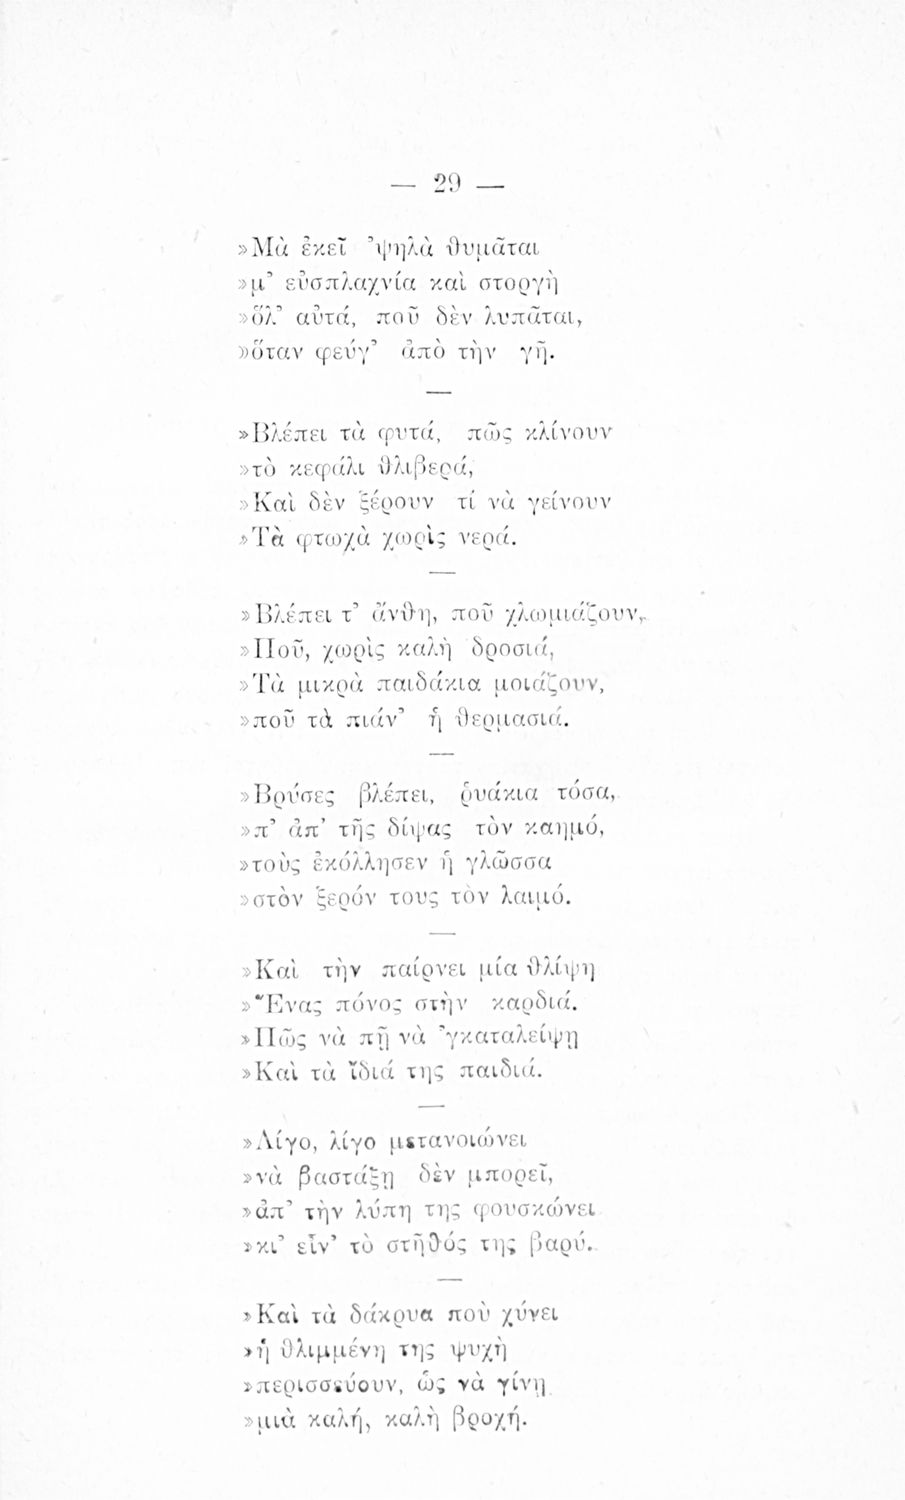 — 29 —
»Μὰ ἐκεῖ ᾿ψηλὰ θυμᾶται
»μ᾿ εὐσπλαχνία καὶ στοργὴ
»ὅλ᾿ αὐτά, ποῦ δὲν λυπᾶται,
»ὅταν φεύγ᾿ ἀπὸ τὴν γῆ.
—
»Βλέπει τὰ φυτά, πῶς κλίνουν
»τὸ κεφάλι θλιβερά,
»Καὶ δὲν ξέρουν τί νὰ γείνουν
»Τὰ φτωχὰ χωρὶς νερά.
—
»Βλέπει τ᾿ ἄνθη, ποῦ χλωμιάζουν,
»Ποῦ, χωρὶς καλὴ δροσιά,
»Τὰ μικρὰ παιδάκια μοιάζουν,
»ποῦ τὰ πιάν᾿ ἡ θερμασιά.
—
»Βρύσες βλέπει, ῥυάκια τόσα,
»π᾿ ἀπ᾿ τῆς δίψας τὸν καημό,
»τοὺς ἐκόλλησεν ἡ γλῶσσα
»στὸν ξερόν τους τὸν λαιμό.
—
»Καὶ τὴν παίρνει μία θλίψη
»Ἕνας πόνος στὴν καρδιά.
»Πῶς νὰ πῇ νὰ ᾿γκαταλείψῃ
»Καὶ τὰ ἴδιά της παιδιά.
—
»Λίγο, λίγο μετανοιώνει
»νὰ βαστάξῃ δὲν μπορεῖ,
»ἀπ᾿ τὴν λύπη της φουσκώνει
»κι᾿ εἶν᾿ τὸ στῆθός της βαρύ.
—
»Καὶ τὰ δάκρυα ποὺ χύνει
»ἡ θλιμμένη της ψυχὴ
»περισσεύουν, ὡς νὰ γίνῃ
»μιὰ καλή, καλὴ βροχή.